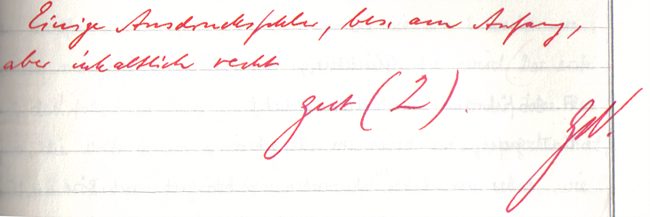 Einige Ausdrucksfehler, bes. am Anfang,
aber inhaltlich recht
gut (2).